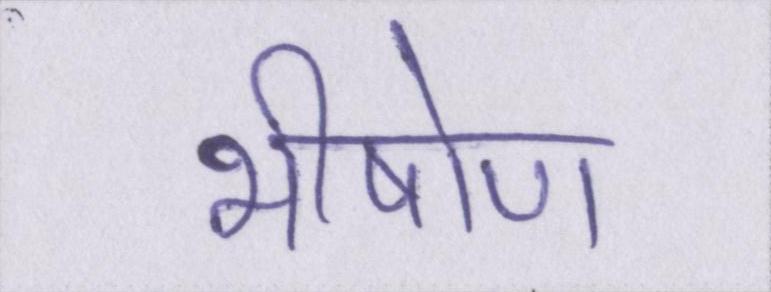 भीषोण